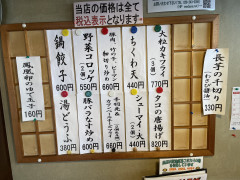 当店の価格は全て
税込表示となります。
長芋の千切り
(わさび醤油)
330円
大粒カキフライ
(5個)
770円
タコの唐揚げ
820円
ちくわ天
440円
シューマイ天
440円
豚肉、竹の子、ピーマン
細切り炒め
660円
660円
野菜コロッケ
(2個)
550円
豚バラなす炒め
600円
鍋餃子
600円
湯どうふ
360円
鳳凰卵のゆで玉子
160円